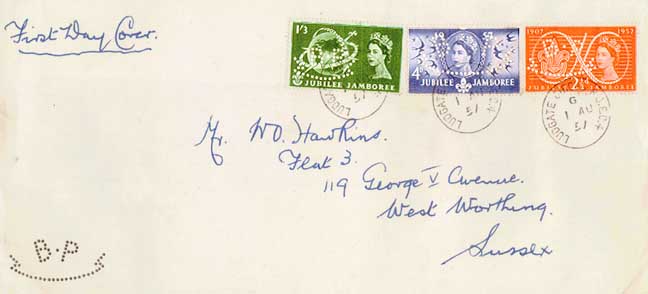 First Day Cover.
1/3
JUBILEE JAMBOREE
4D
JUBILEE JAMBOREE
1907 1957
JUBILEE JAMBOREE
LUDGATE
1 AU
57
LUDGATE
1 AU
57
LUDGATE C E.C.4
G
1 AU
57
Mr. WD. Hawkins.
Flat 3.
119 George V Avenue.
West Worthing.
Sussex
B·P